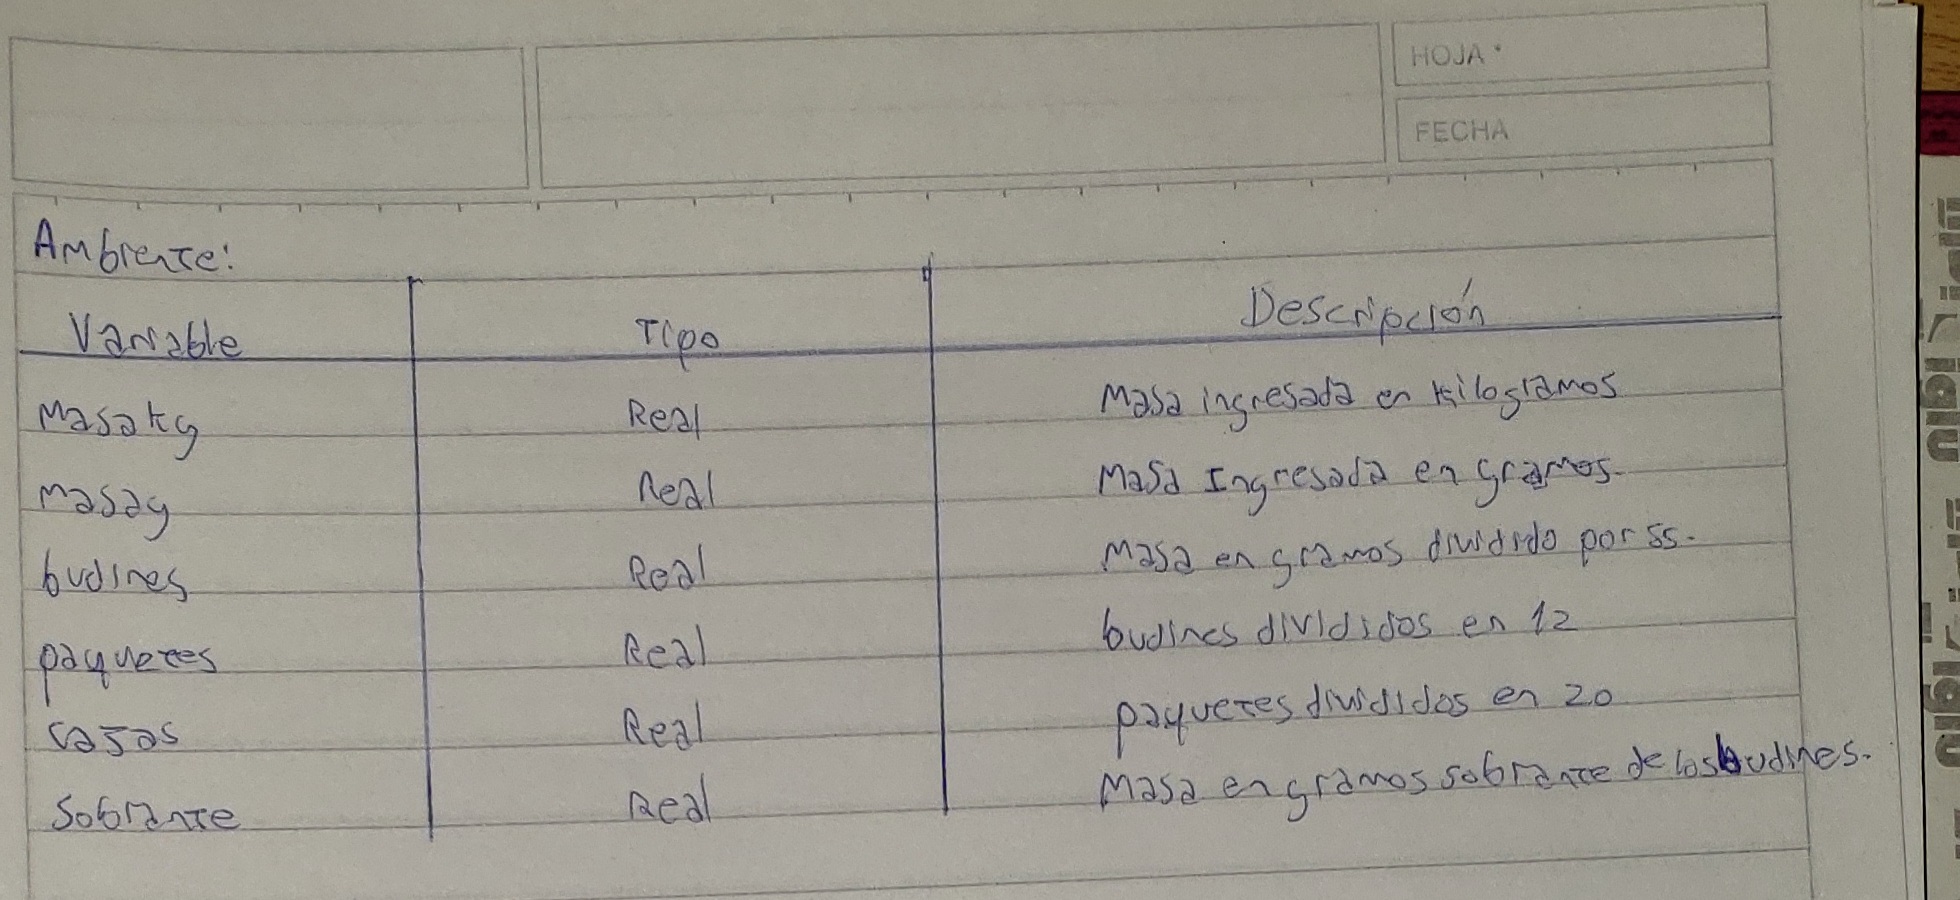 HOJA
FECHA
Ambiente:
Variable Tipo Descripción
Masakg Real Masa ingresada en Kilogramos
Masag Real Masa Ingresada en gramos.
budines Real Masa en gramos dividido por 55.
paquetes Real budines divididos en 12
casas Real paquetes divididos en 20
Sobrante Real Masa en gramos sobrante de los budines.